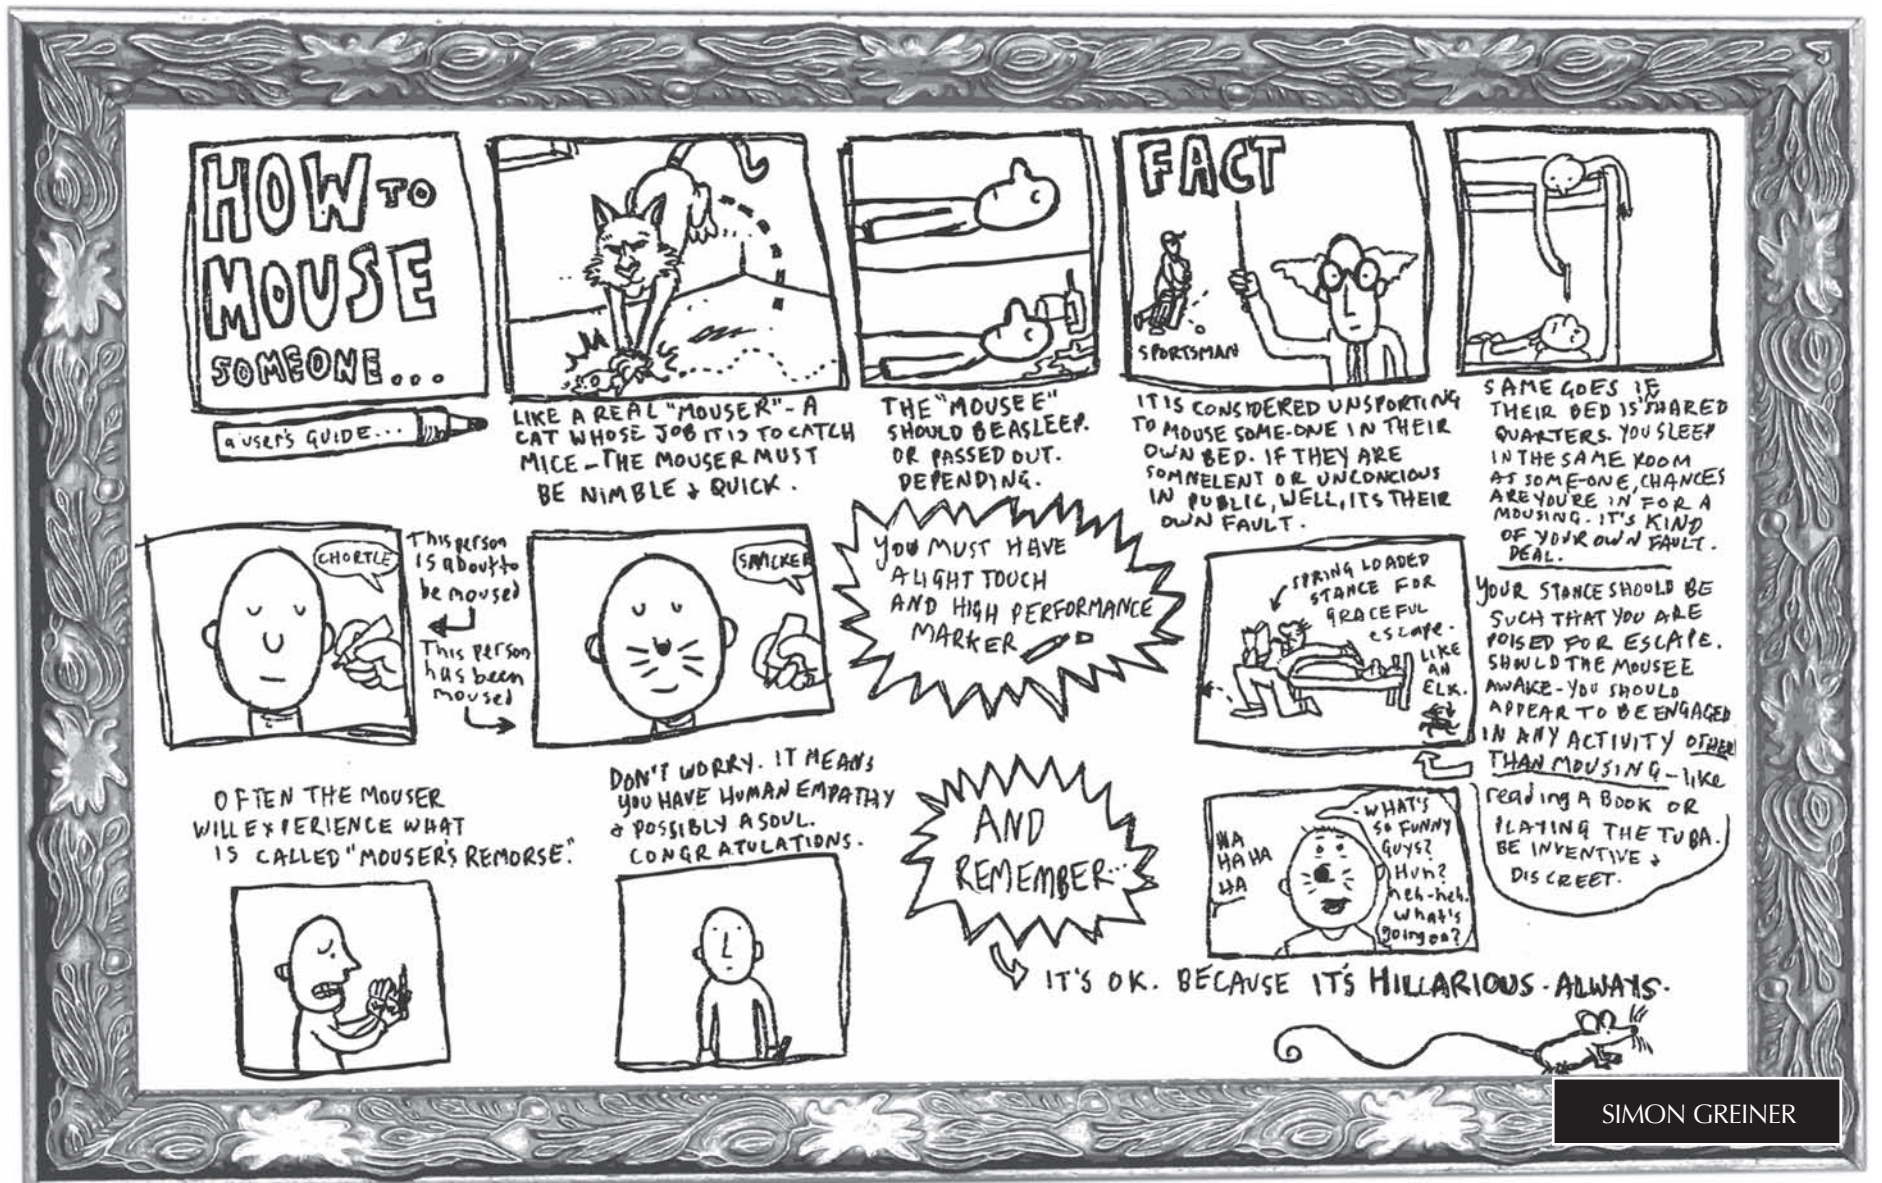 HOW TO
MOUSE
SOMEONE...
a user's GUIDE...
LIKE A REAL "MOUSER" - A
CAT WHOSE JOB IT IS TO CATCH
MICE - THE MOUSER MUST
BE NIMBLE & QUICK.
THE "MOUSEE"
SHOULD BE ASLEEP.
OR PASSED OUT.
DEPENDING.
FACT
SPORTSMAN
IT IS CONSIDERED UNSPORTING
TO MOUSE SOME-ONE IN THEIR
OWN BED. IF THEY ARE
SOMNELENT OR UNCONCIOUS
IN PUBLIC, WELL, ITS THEIR
OWN FAULT.
SAME GOES IF
THEIR BED IS SHARED
QUARTERS. YOU SLEEP
IN THE SAME ROOM
AS SOME-ONE, CHANCES
ARE YOU'RE IN FOR A
MOUSING. IT'S KIND
OF YOUR OWN FAULT.
DEAL.
CHORTLE
This person
is about to
be moused
This person
has been
moused
SNICKER
YOU MUST HAVE
A LIGHT TOUCH
AND HIGH PERFORMANCE
MARKER
SPRING LOADED
STANCE FOR
GRACEFUL
escape.
LIKE
AN
ELK.
YOUR STANCE SHOULD BE
SUCH THAT YOU ARE
POISED FOR ESCAPE.
SHOULD THE MOUSEE
AWAKE - YOU SHOULD
APPEAR TO BE ENGAGED
IN ANY ACTIVITY OTHER
THAN MOUSING - like
reading A BOOK OR
PLAYING THE TUBA.
BE INVENTIVE &
DISCREET.
OFTEN THE MOUSER
WILL EXPERIENCE WHAT
IS CALLED "MOUSER'S REMORSE."
DON'T WORRY. IT MEANS
YOU HAVE HUMAN EMPATHY
& POSSIBLY A SOUL.
CONGRATULATIONS.
AND
REMEMBER...
HA
HA HA
HA
-WHAT'S
SO FUNNY
GUYS?
Huh?
heh-heh.
what's
going on?
IT'S OK. BECAUSE IT'S HILLARIOUS. ALWAYS.
SIMON GREINER